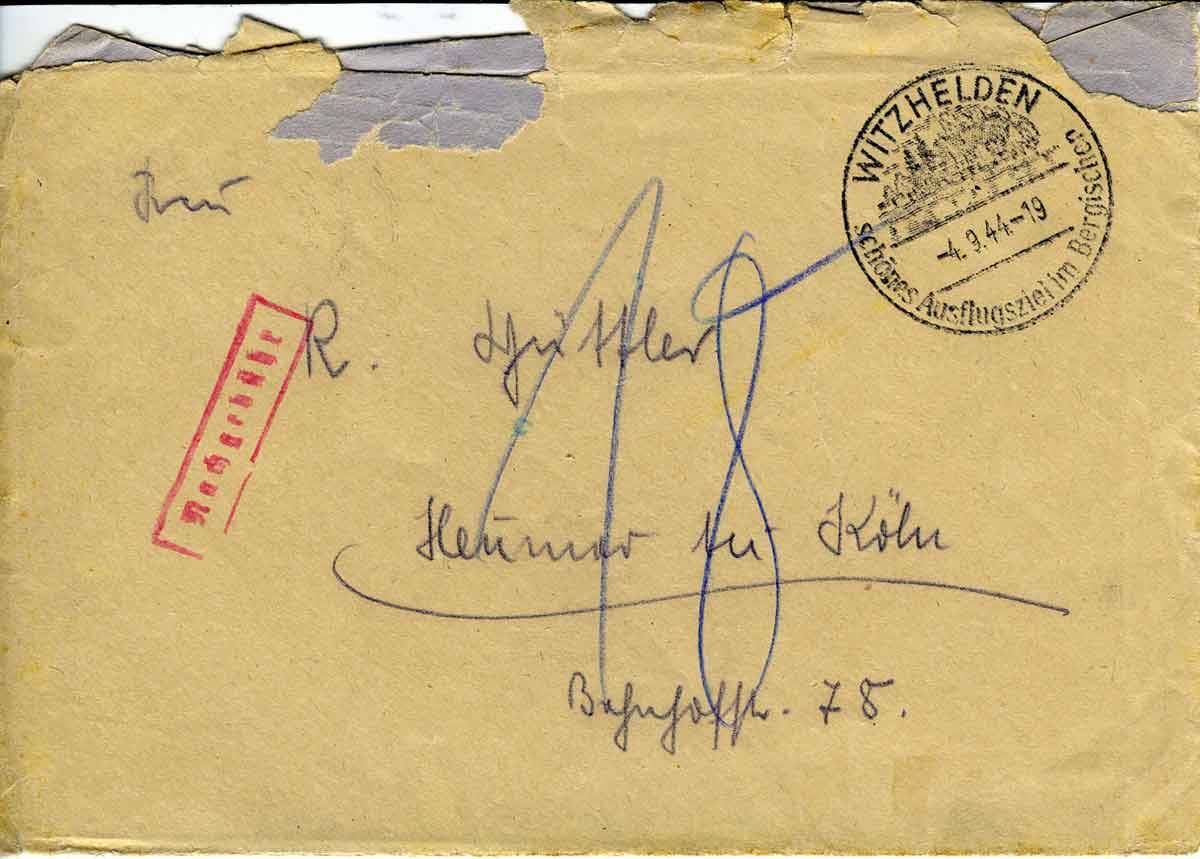 WITZHELDEN
-4.9.44-19
schönes Ausflugsziel im Bergischen
Frau
Nachgebühr
R.
18
Heumar bei Köln
Bahnhofstr. 75.